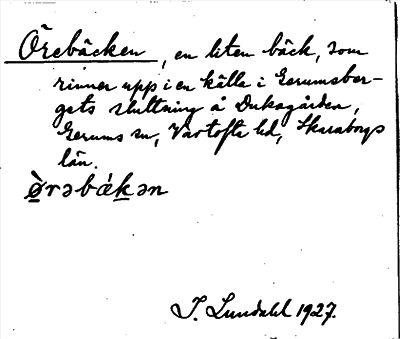 Örebäcken, en liten bäck, som
rinner upp i en källa i Gerumsber-
gets sluttning å Dukagården,
Gerums sn, Vartofta hd, Skaraborgs
län.
ø̀rəbǽkən
I. Lundahl 1927.